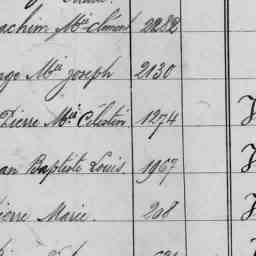 achim Mie Clément 2282
nge Mie Joseph 2130
Pierre Mie Célestin 1274
an Baptiste Louis 1967
ierre Marie 268